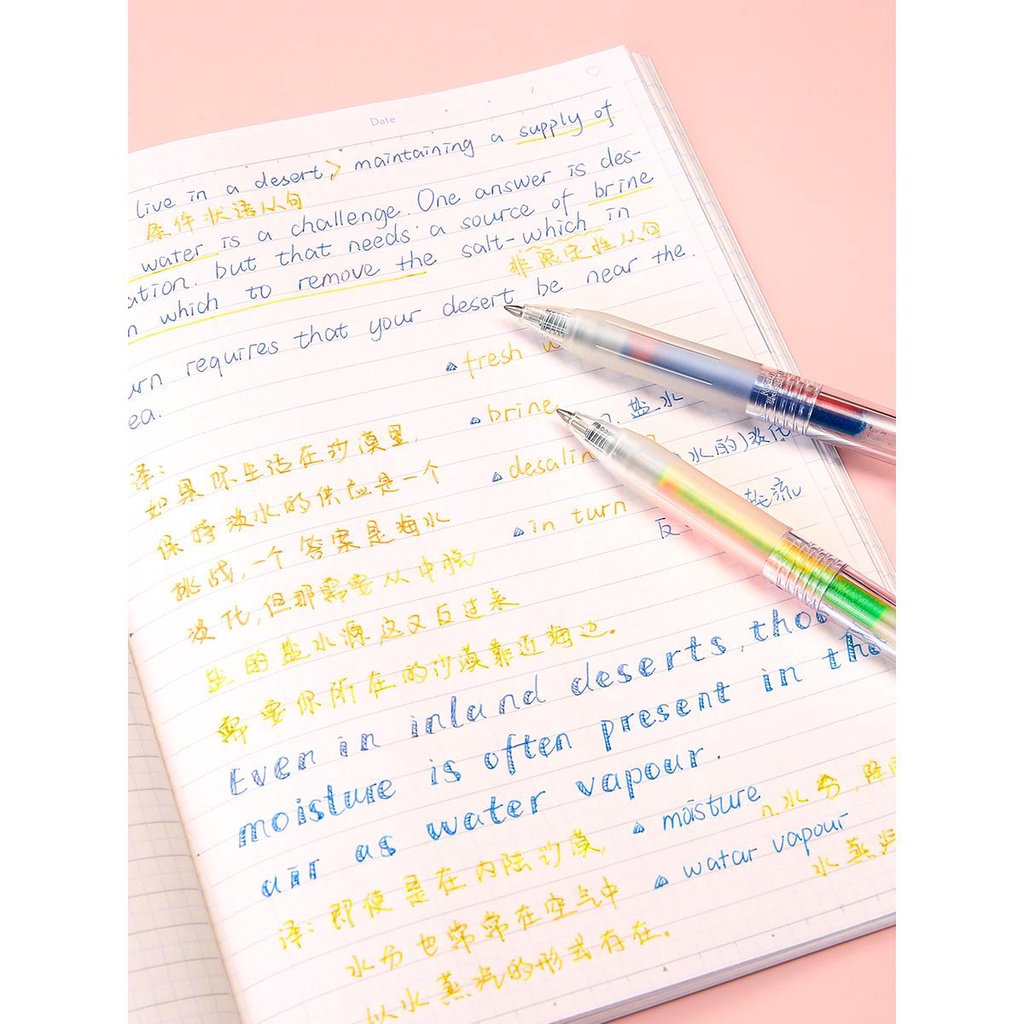 Date
live in a desert, maintaining a supply of
条件状语从句
water is a challenge. One answer is des-
ation. but that needs a source of brine
n which to remove the salt-which in
非限定性从句
urn requires that your desert be near the.
ea.
fresh w
brine
盐水
desalin
水的)淡化
in turn
反
流
译:
如果你生活在沙漠里,
保持淡水的供应是一个
挑战,一个答案是海水
淡化,但那需要从中脱
盐的盐水源这又反过来
需要你所在的沙漠靠近海边.
Even in inland deserts, thou
moisture is often present in the
air as water vapour.
moisture
n.水分,降雨
watar vapour
水蒸汽
译:即使是在内陆沙漠,
水份也常常在空气中
以水蒸汽的形式存在.